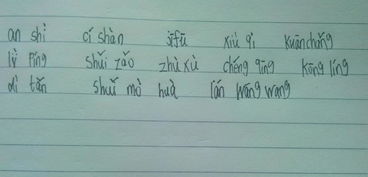 an shì cí shàn sīfū xiù qì kuānchǎng
lǜ píng shuǐ zǎo zhù xù chéng qīng kōng líng
dì tǎn shuǐ mò huà lán wāng wang